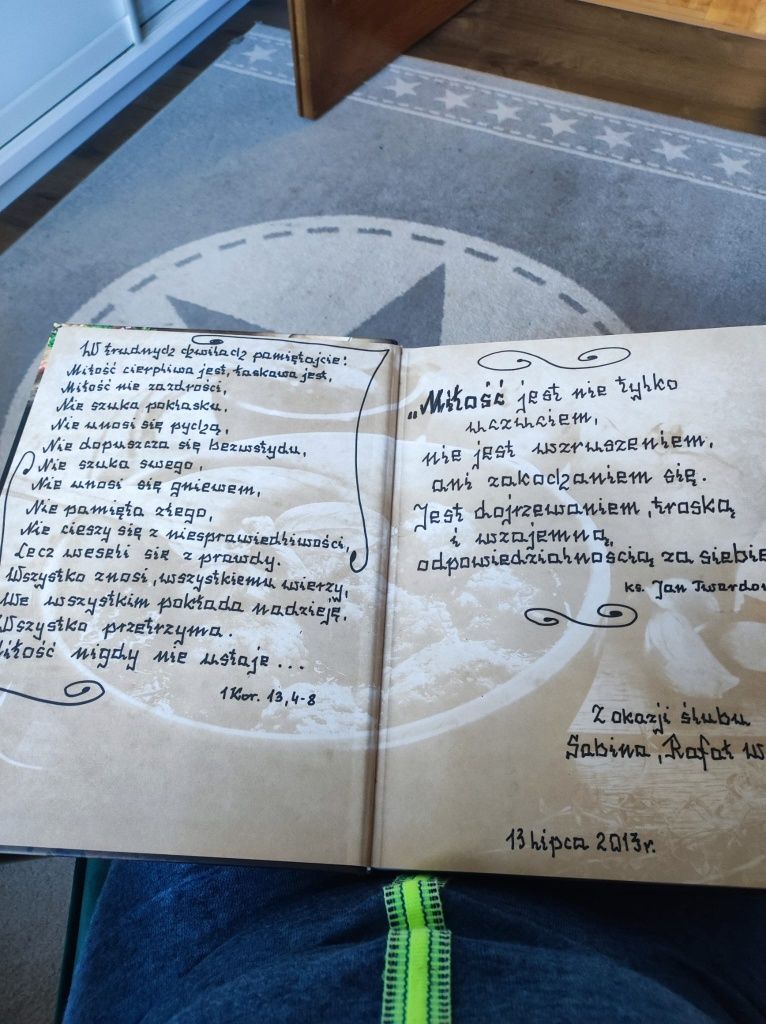 W trudnych chwilach pamiętajcie:
Miłość cierpliwa jest, łaskawa jest,
Miłość nie zazdrości,
Nie szuka poklasku,
Nie unosi się pychą,
Nie dopuszcza się bezwstydu,
Nie szuka swego,
Nie unosi się gniewem,
Nie pamięta złego,
Nie cieszy się z niesprawiedliwości,
Lecz weseli się z prawdy.
Wszystko znosi, wszystkiemu wierzy,
We wszystkim pokłada nadzieję,
Wszystko przetrzyma.
Miłość nigdy nie ustaje...
1 Kor. 13, 4-8
„Miłość jest nie tylko
uczuciem,
nie jest wzruszeniem,
ani zakochaniem się.
Jest dojrzewaniem, troską
i wzajemną
odpowiedzialnością za siebie
ks. Jan Twardow
Z okazji ślubu
Sabina, Rafał w
13 lipca 2013r.